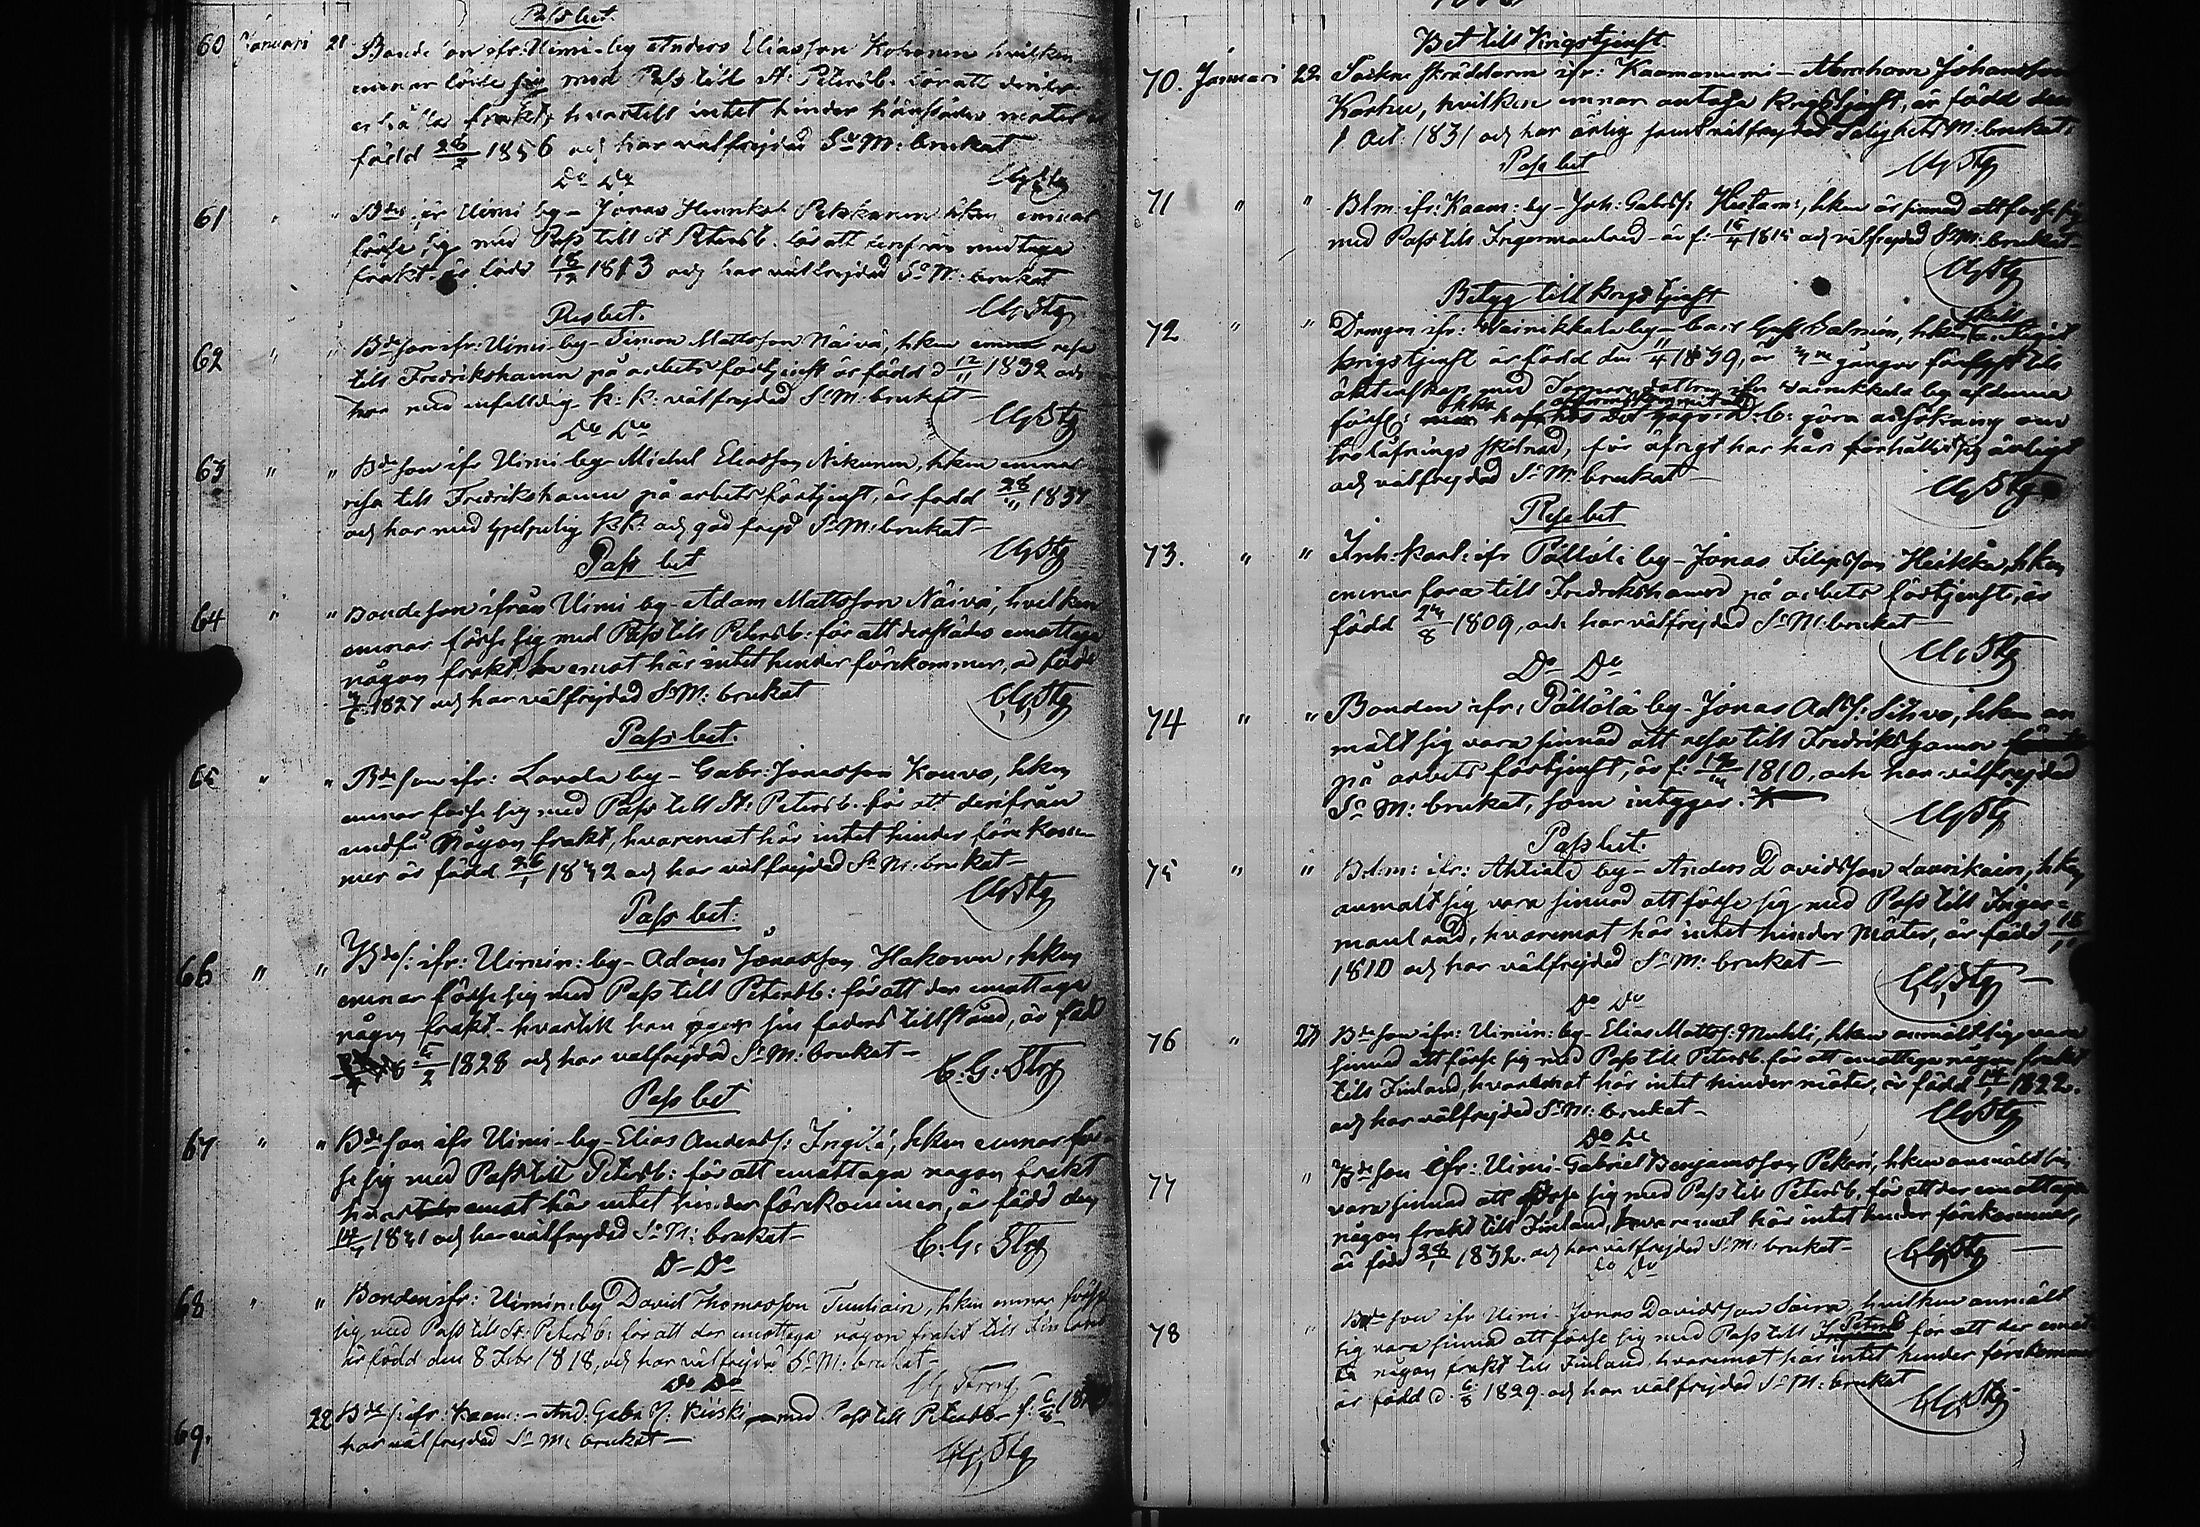 Pass bet.
60 Januari 21 Bonde son ifr: Uimi-by Anders Eliasson Kohonen hvilken
ernar förse sig med Pass till St: Petersb. för att derifr.
erhålla frakt, hvartill intet hinder härstädes möter är
född 28 1856 och har välfrejdad S:a M: brukat
CGStg
Do Do
61 " " Bdes: ifr Uimi by- Jonas Henriks: Pekkanen hken ernar
förse sig med Pass till St Petersb. för att derifrån emottaga
frakt är född 18/12 1813 och har välfrejdad S:a M: brukat
CGStg
Resbet.
62 " " Bde son ifr: Uimi-by- Simon Mattsson Näivä, hken ernar resa
till Fredrikshamn på arbets förtjenst är född d 12/11 1832 och
har med enfaldig k: k: välfrejdad S:a M: brukat-
CGStg
Do Do
63 " " Bde son ifr Uimi-by- Michel Eliasson Nikunen, hken ernar
resa till Fredrikshamn på arbets förtjenst, är född 28 1837
och har med hjelpelig k.k: och god frejd S:a M: brukat-
CGStg
Pass bet
64 " " Bondeson ifrån Uimi by- Adam Mattsson Näivä, hvilken
ernar förse sig med Pass till Petersb: för att derstädes emottaga
någon frakt, hvaremot här intet hinder förekommer, är född
1827 och har välfrejdad S:a M: brukat
CGStg
Pass bet.
65 " " Bde son ifr: Lavola by- Gabr: Jonasson Kouvo, hken
ernar förse sig med Pass till St: Petersb: för att derifrån
undfå någon frakt, hvaremot här intet hinder förekom-
mer är född 26/1 1842 och har välfrejdad S:a M: brukat-
CGStg
Pass bet:
66 " " Bdes: ifr: Uimin: by- Adam Jonasson Hakonen, hken
ernar förse sig med Pass till Petersb: för att der emottaga
någon frakt- hvartill han äger sin faders tillstånd, är född
6/2 1828 och har välfrejdad S:a M: brukat-
C: G: Stg
Pass bet
67 " " Bde son ifr Uimi-by- Elias Anderss: Ingilä, hken ernar för-
se sig med Pass till Petersb: för att emottaga någon frakt
hvaremot här intet hinder förekommer, är född den
14 1841 och har välfrejdad S:a M: brukat-
C: G: Stg
Do Do
68 " " Bonden ifr: Uimin: by David Thomasson Tuuliain, hken ernar förse
sig med Pass till St: Petersb: för att der emottaga någon frakt till Finland
är född den 8 Febr 1818, och har välfrejdad S:a M: brukat-
CG Strng
Do Do
69. 22 Bdes: ifr: Kaam:- And: Gabr s: Kiiski med Pass till Petersb- f: 6/8
har välfrejdad S:a M: brukat-
CGStg
Bet till Krigstjenst.
70. Januari 22 Sockne skräddaren ifr: Kaamanniemi- Abraham Johansson
Karhu, hvilken ernar antaga Krigstjenst, är född den
1 Oct. 1831 och har ärlig samt välfrejdad Salighets M: brukat.
CGStg
Pass bet
71 " " Blm: ifr: Kaam: by- Joh: Gabrs: Hietam:, hken är sinnad att förse sig
med Pass till Ingermanland- är f: 1815 och välfrejdad S:M: brukat-
CGStg
Betyg till krigstjenst
72 " " Drengen ifr: Vainikkala by- Carl Gust: Salmén, hken
krigstjenst är född den 11/4 1839, är gånger förlyst till
äktenskap med ifr Vainikkala by af denna
förs: göra ansökning om
trolofnings skilnad, för öfrigt har han förhållit sig ärligt
och välfrejdad S:a M: brukat-
CGStg
Rese bet
73. " " Inh: karl: ifr Pällölä by- Jonas Filipsson Heikka, hken
ernar fara till Fredrikshamn på arbets förtjenst, är
född 24/8 1809, och har välfrejdad S:a M: brukat-
CGStg
Do Do
74 " " Bonden ifr: Pällölä by- Jonas Ads: Sihvo, hken an-
mält sig vara sinnad att resa till Fredrikshamn
på arbets förtjenst, är f: 1810, och har välfrejdad
S:a M: brukat, som intygar.
CGStg
Pass bet.
75 " " Blm: ifr: Ahtiala by- Anders Davidsson Laurikain, hken
anmält sig vara sinnad att förse sig med Pass till Inger=
manland, hvaremot här intet hinder möter, är född 16
1810 och har välfrejdad S:a M: brukat-
CGStg-
Do Do
76 " 23 Bde son ifr: Uimin: by- Elias Mattss: Muhli, hken anmält sig vara
sinnad att förse sig med Pass till Petersb: för att emottaga någon frakt
till Finland, hvaremot här intet hinder möter, är född 14 1822.
och har välfrejdad S:a M: brukat-
CGStg
Do Do
77 " Bde son ifr: Uimi- Gabriel Benjamsson Pekari, hken anmält sig
vara sinnad att förse sig med Pass till Petersb. för att der emottaga
någon frakt till Finland, hvaremot här intet hinder förekommer,
är född 28/1 1832. och har välfrejdad S:a M: brukat-
CGStg
Do Do
78 " Bde son ifr Uimi- Jonas Davidsson Saira, hvilken anmält
sig vara sinnad att förse sig med Pass till Petersb för att der emot-
ta någon frakt till Finland hvaremot här intet hinder förekommer
är född d. 6/8 1829 och har välfrejdad S:a M: brukat
CGStg-